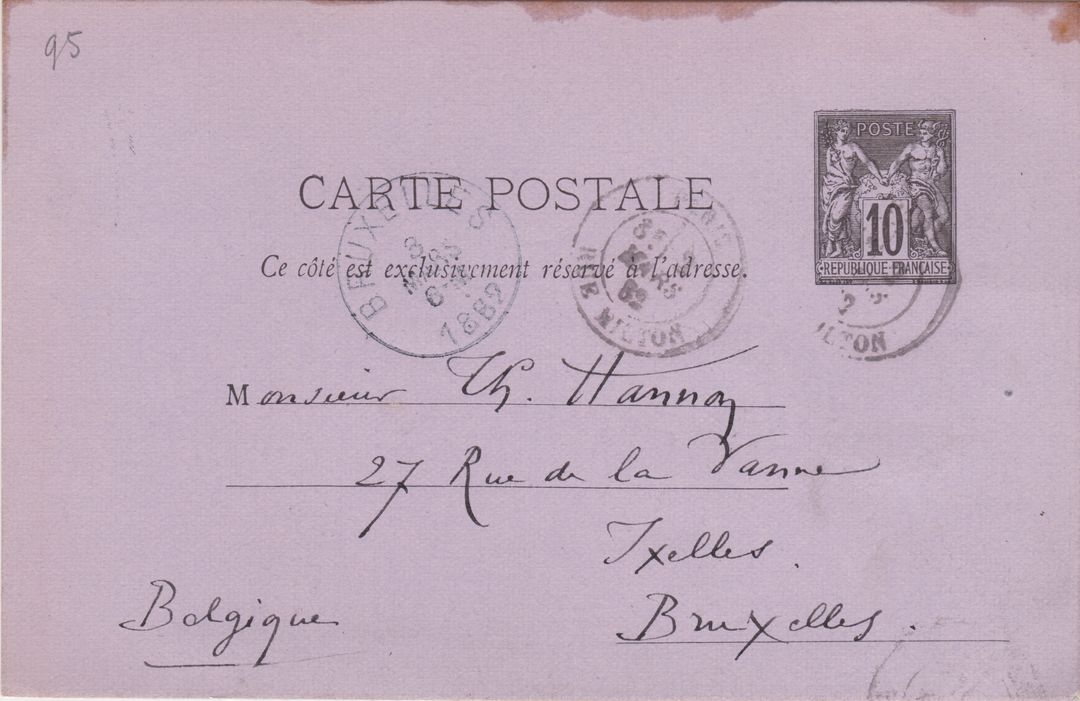 95
POSTE
10
REPUBLIQUE FRANÇAISE
CARTE POSTALE
Ce côté est exclusivement réservé à l'adresse.
BRUXELLES
3
MARS
1882
RUE MILTON
MARS
82
ILTON
Monsieur Th. Hannon
27 Rue de la Vanne
Ixelles.
Belgique
Bruxelles.